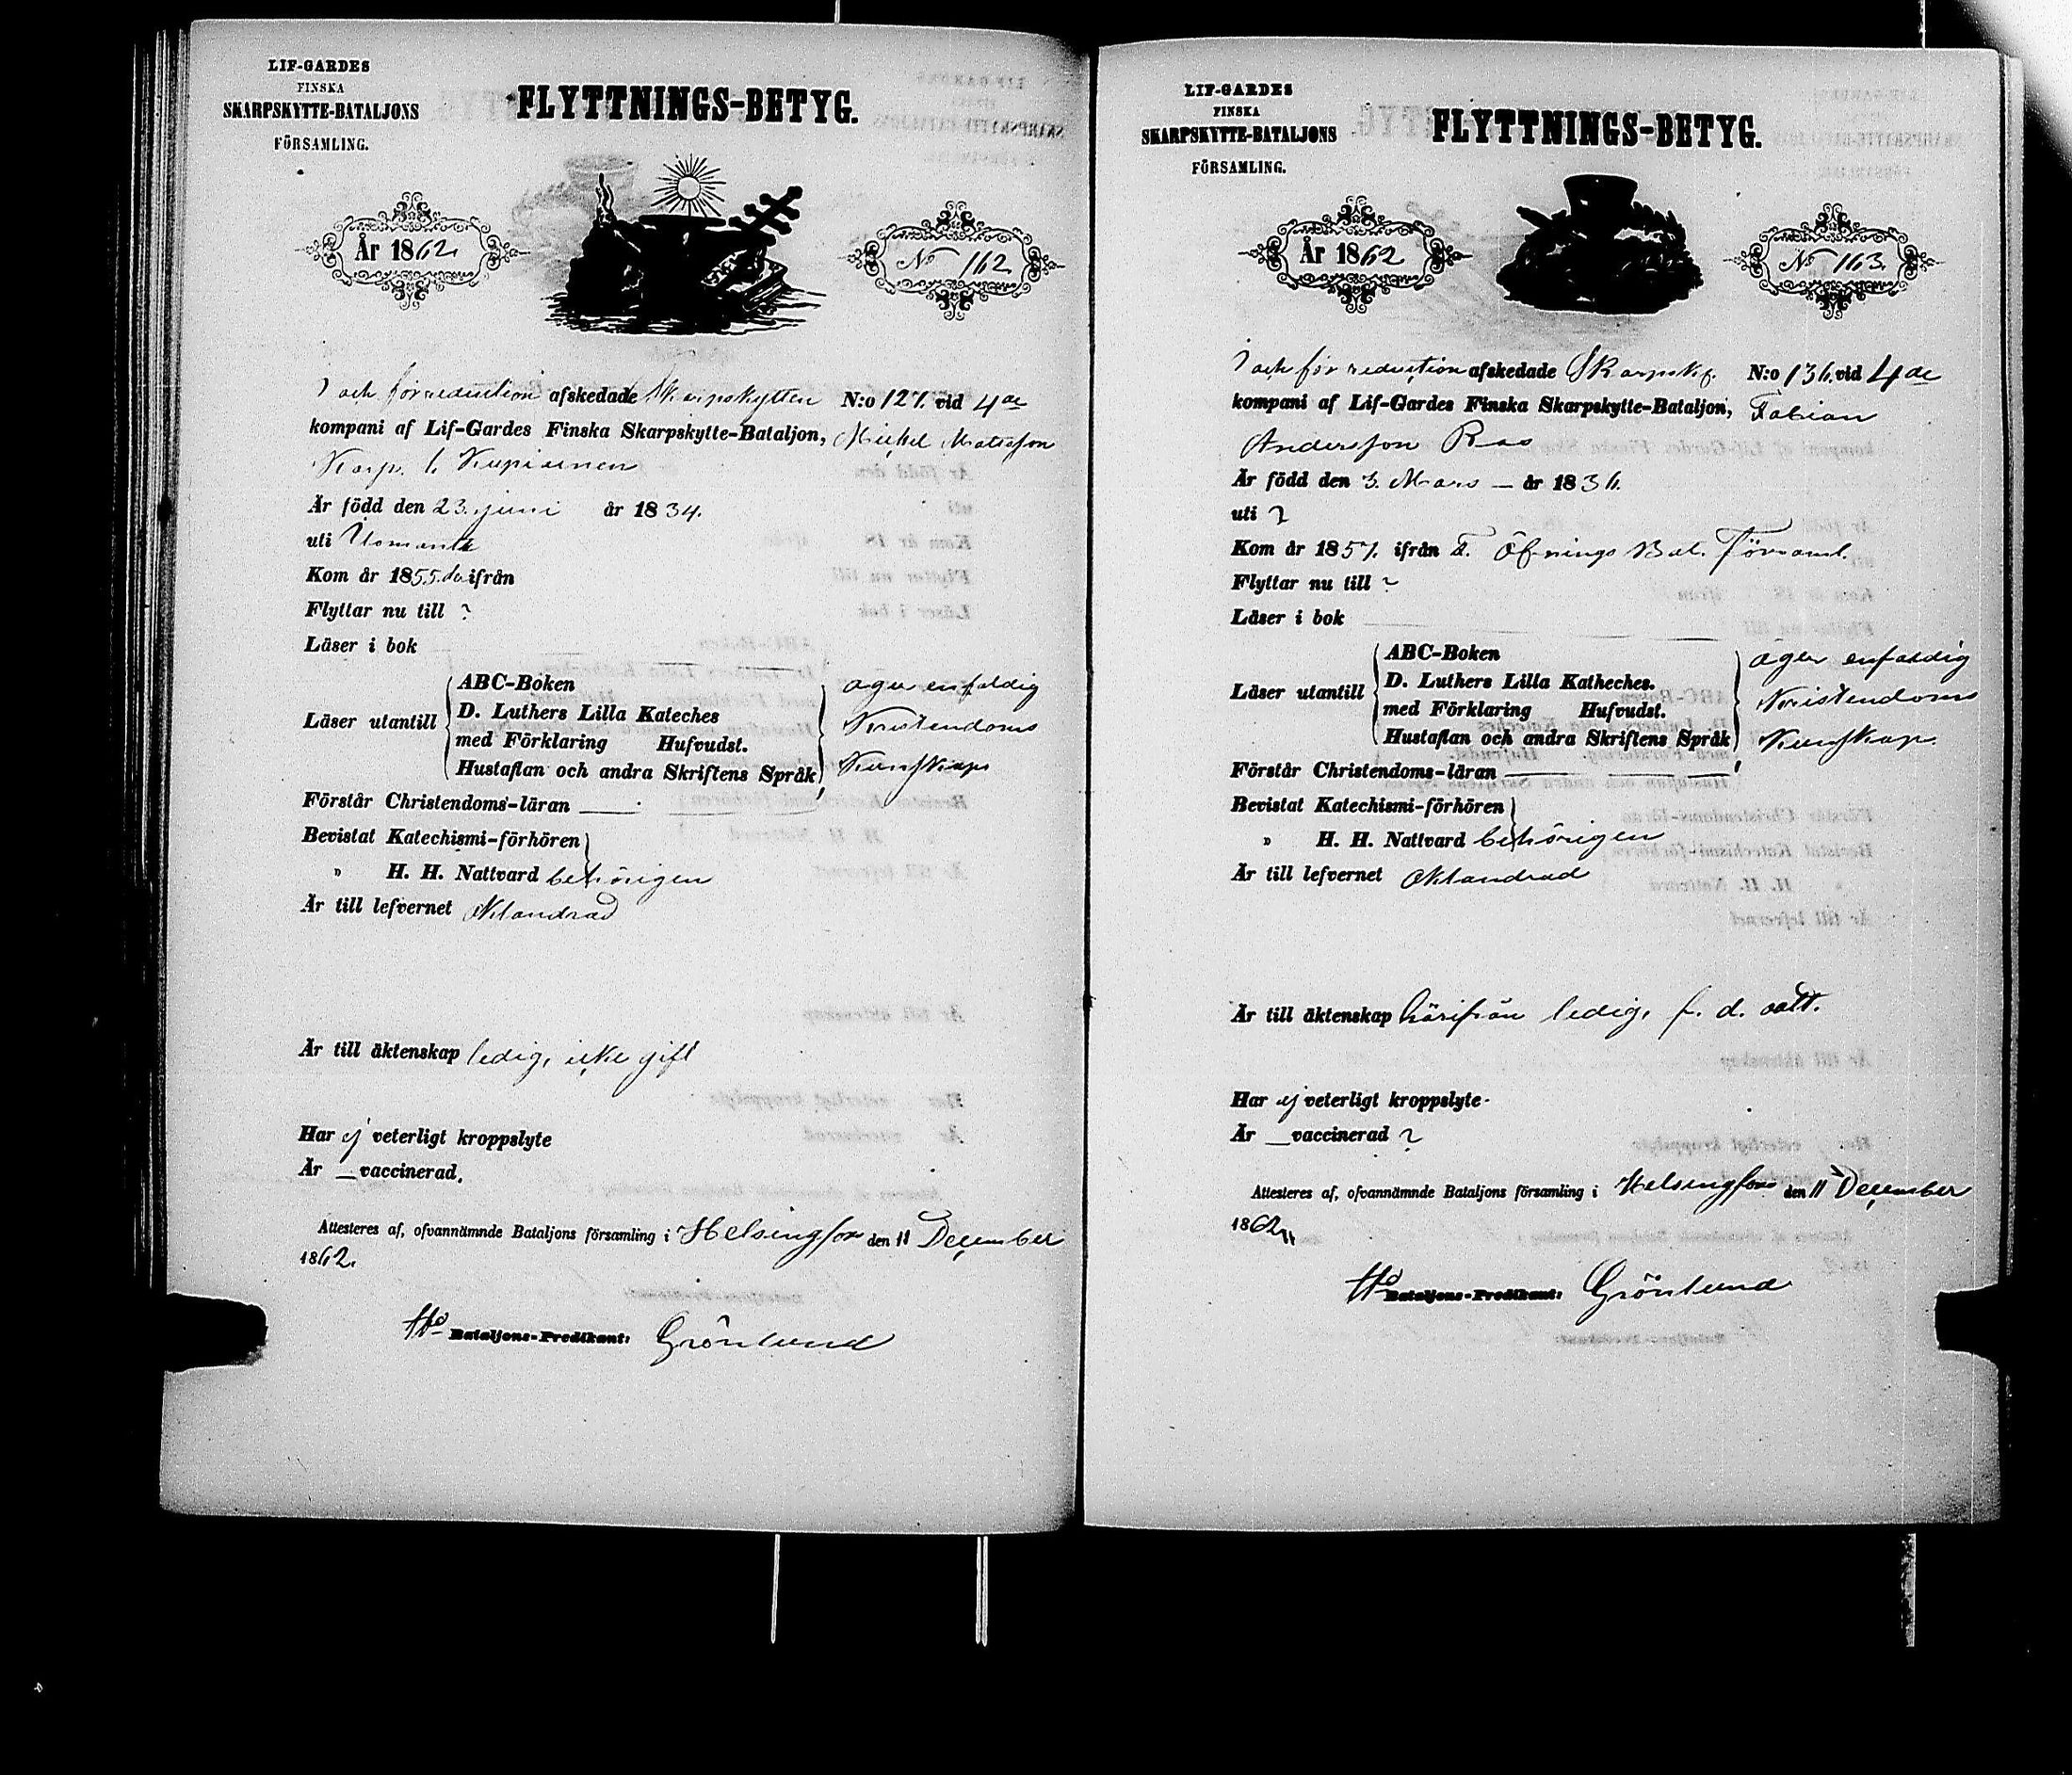 LIF-GARDES
FINSKA
SKARPSKYTTE-BATALJONS
FÖRSAMLING.
FLYTTNINGS-BETYG.
År 1862
No 162
I och för reduction afskedade Skarpskytten N:o 127. vid 4de
kompani af Lif-Gardes Finska Skarpskytte-Bataljon, Mickel Matsson
Karp. l. Kupiainen
Är född den 23. juni år 1834.
uti Ilomants
Kom år 1855. ifrån
Flyttar nu till ?
Läser i bok
Läser utantill
ABC-Boken
D. Luthers Lilla Kateches
med Förklaring Hufvudst.
Hustaflan och andra Skriftens Språk
äger enfaldig
Kristendoms
Kunskap
Förstår Christendoms-läran
Bevistat Katechismi-förhören
" H. H. Nattvard behörigen
Är till lefvernet oklandrad
Är till äktenskap ledig, icke gift
Har ej veterligt kroppslyte
Är — vaccinerad.
Attesteres af, ofvannämnde Bataljons församling i Helsingfors den 11 December
1862.
Bataljons-Predikant: Grönlund
LIF-GARDES
FINSKA
SKARPSKYTTE-BATALJONS
FÖRSAMLING.
FLYTTNINGS-BETYG.
År 1862
No 163.
I och för reduction afskedade Skarpsk. N:o 136. vid 4de
kompani af Lif-Gardes Finska Skarpskytte-Bataljon, Fabian
Andersson Ras
Är född den 3. Mars — år 1836.
uti ?
Kom år 1857. ifrån F. Öfnings Bat. Församl.
Flyttar nu till ?
Läser i bok
Läser utantill
ABC-Boken
D. Luthers Lilla Katheches.
med Förklaring Hufvudst.
Hustaflan och andra Skriftens Språk
äger enfaldig
Kristendoms
Kunskap.
Förstår Christendoms-läran
Bevistat Katechismi-förhören
" H. H. Nattvard behörigen
Är till lefvernet oklandrad
Är till äktenskap härifrån ledig, f. d. vatt.
Har ej veterligt kroppslyte
Är — vaccinerad ?
Attesteres af, ofvannämnde Bataljons församling i Helsingfors den 11 December
1862
Bataljons-Predikant: Grönlund